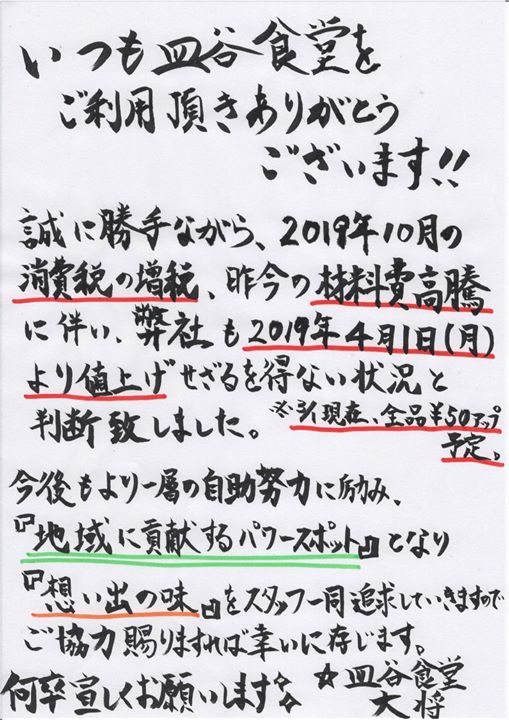 いつも皿谷食堂を
ご利用頂きありがとう
ございます!!
誠に勝手ながら、2019年10月の
消費税の増税、昨今の材料費高騰
に伴い、弊社も2019年4月1日(月)
より値上げせざるを得ない状況と
判断致しました。
※3/1現在、全品¥50アップ
予定。
今後もより一層の自助努力に励み、
『地域に貢献するパワースポット』となり
『想い出の味』をスタッフ一同追求していきますので
ご協力賜りますれば幸いに存じます。
何卒宜しくお願いします☆
☆皿谷食堂
大将